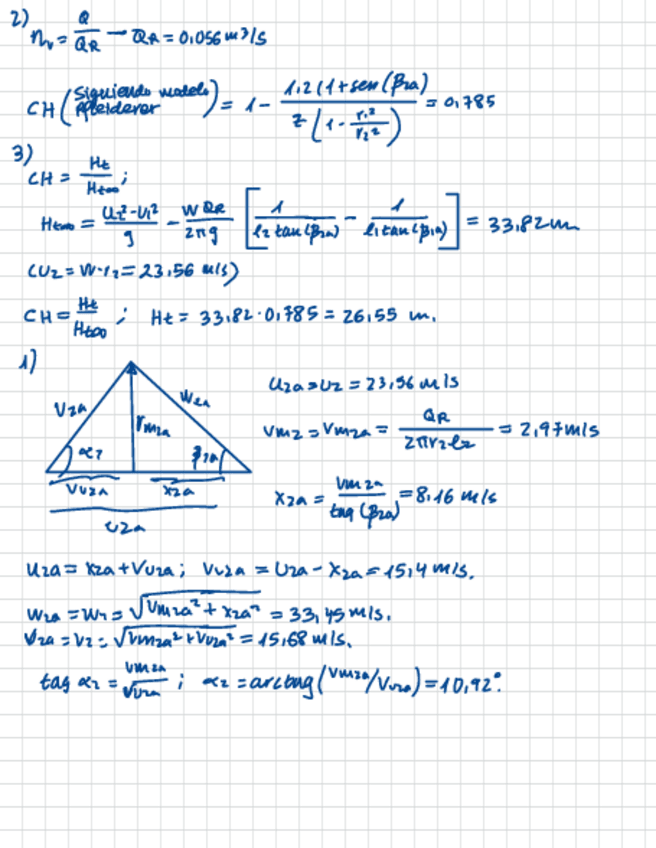 2)
ηv = Q/QR — QR = 0,056 m³/s
CH (Siguiendo modelo Pfleiderer) = 1 - 1,2(1+sen(β2a)) / z(1 - r1²/r2²) = 0,785
3)
CH = Ht/Ht∞ ;
Ht∞ = (U2²-U1²)/g - WQR/2πg [1/(l2 tan(β2a)) - 1/(l1 tan(β1a))] = 33,82m
(U2 = W·r2 = 23,56 m/s)
CH = Ht/Ht∞ ; Ht = 33,82·0,785 = 26,55 m.
1)
V2a W2a Vm2a α2 β2a
Vu2a X2a
U2a
U2a = U2 = 23,56 m/s
Vm2 = Vm2a = QR/(2πr2l2) = 2,97m/s
X2a = Vm2a/tag(β2a) = 8,16 m/s
U2a = X2a + Vu2a ; Vu2a = U2a - X2a = 15,4 m/s.
W2a = W2 = √(Vm2a² + X2a²) = 33,45 m/s.
V2a = V2 = √(Vm2a² + Vu2a²) = 15,68 m/s.
tag α2 = Vm2a/Vu2a ; α2 = arctag(Vm2a/Vu2a) = 10,92°.